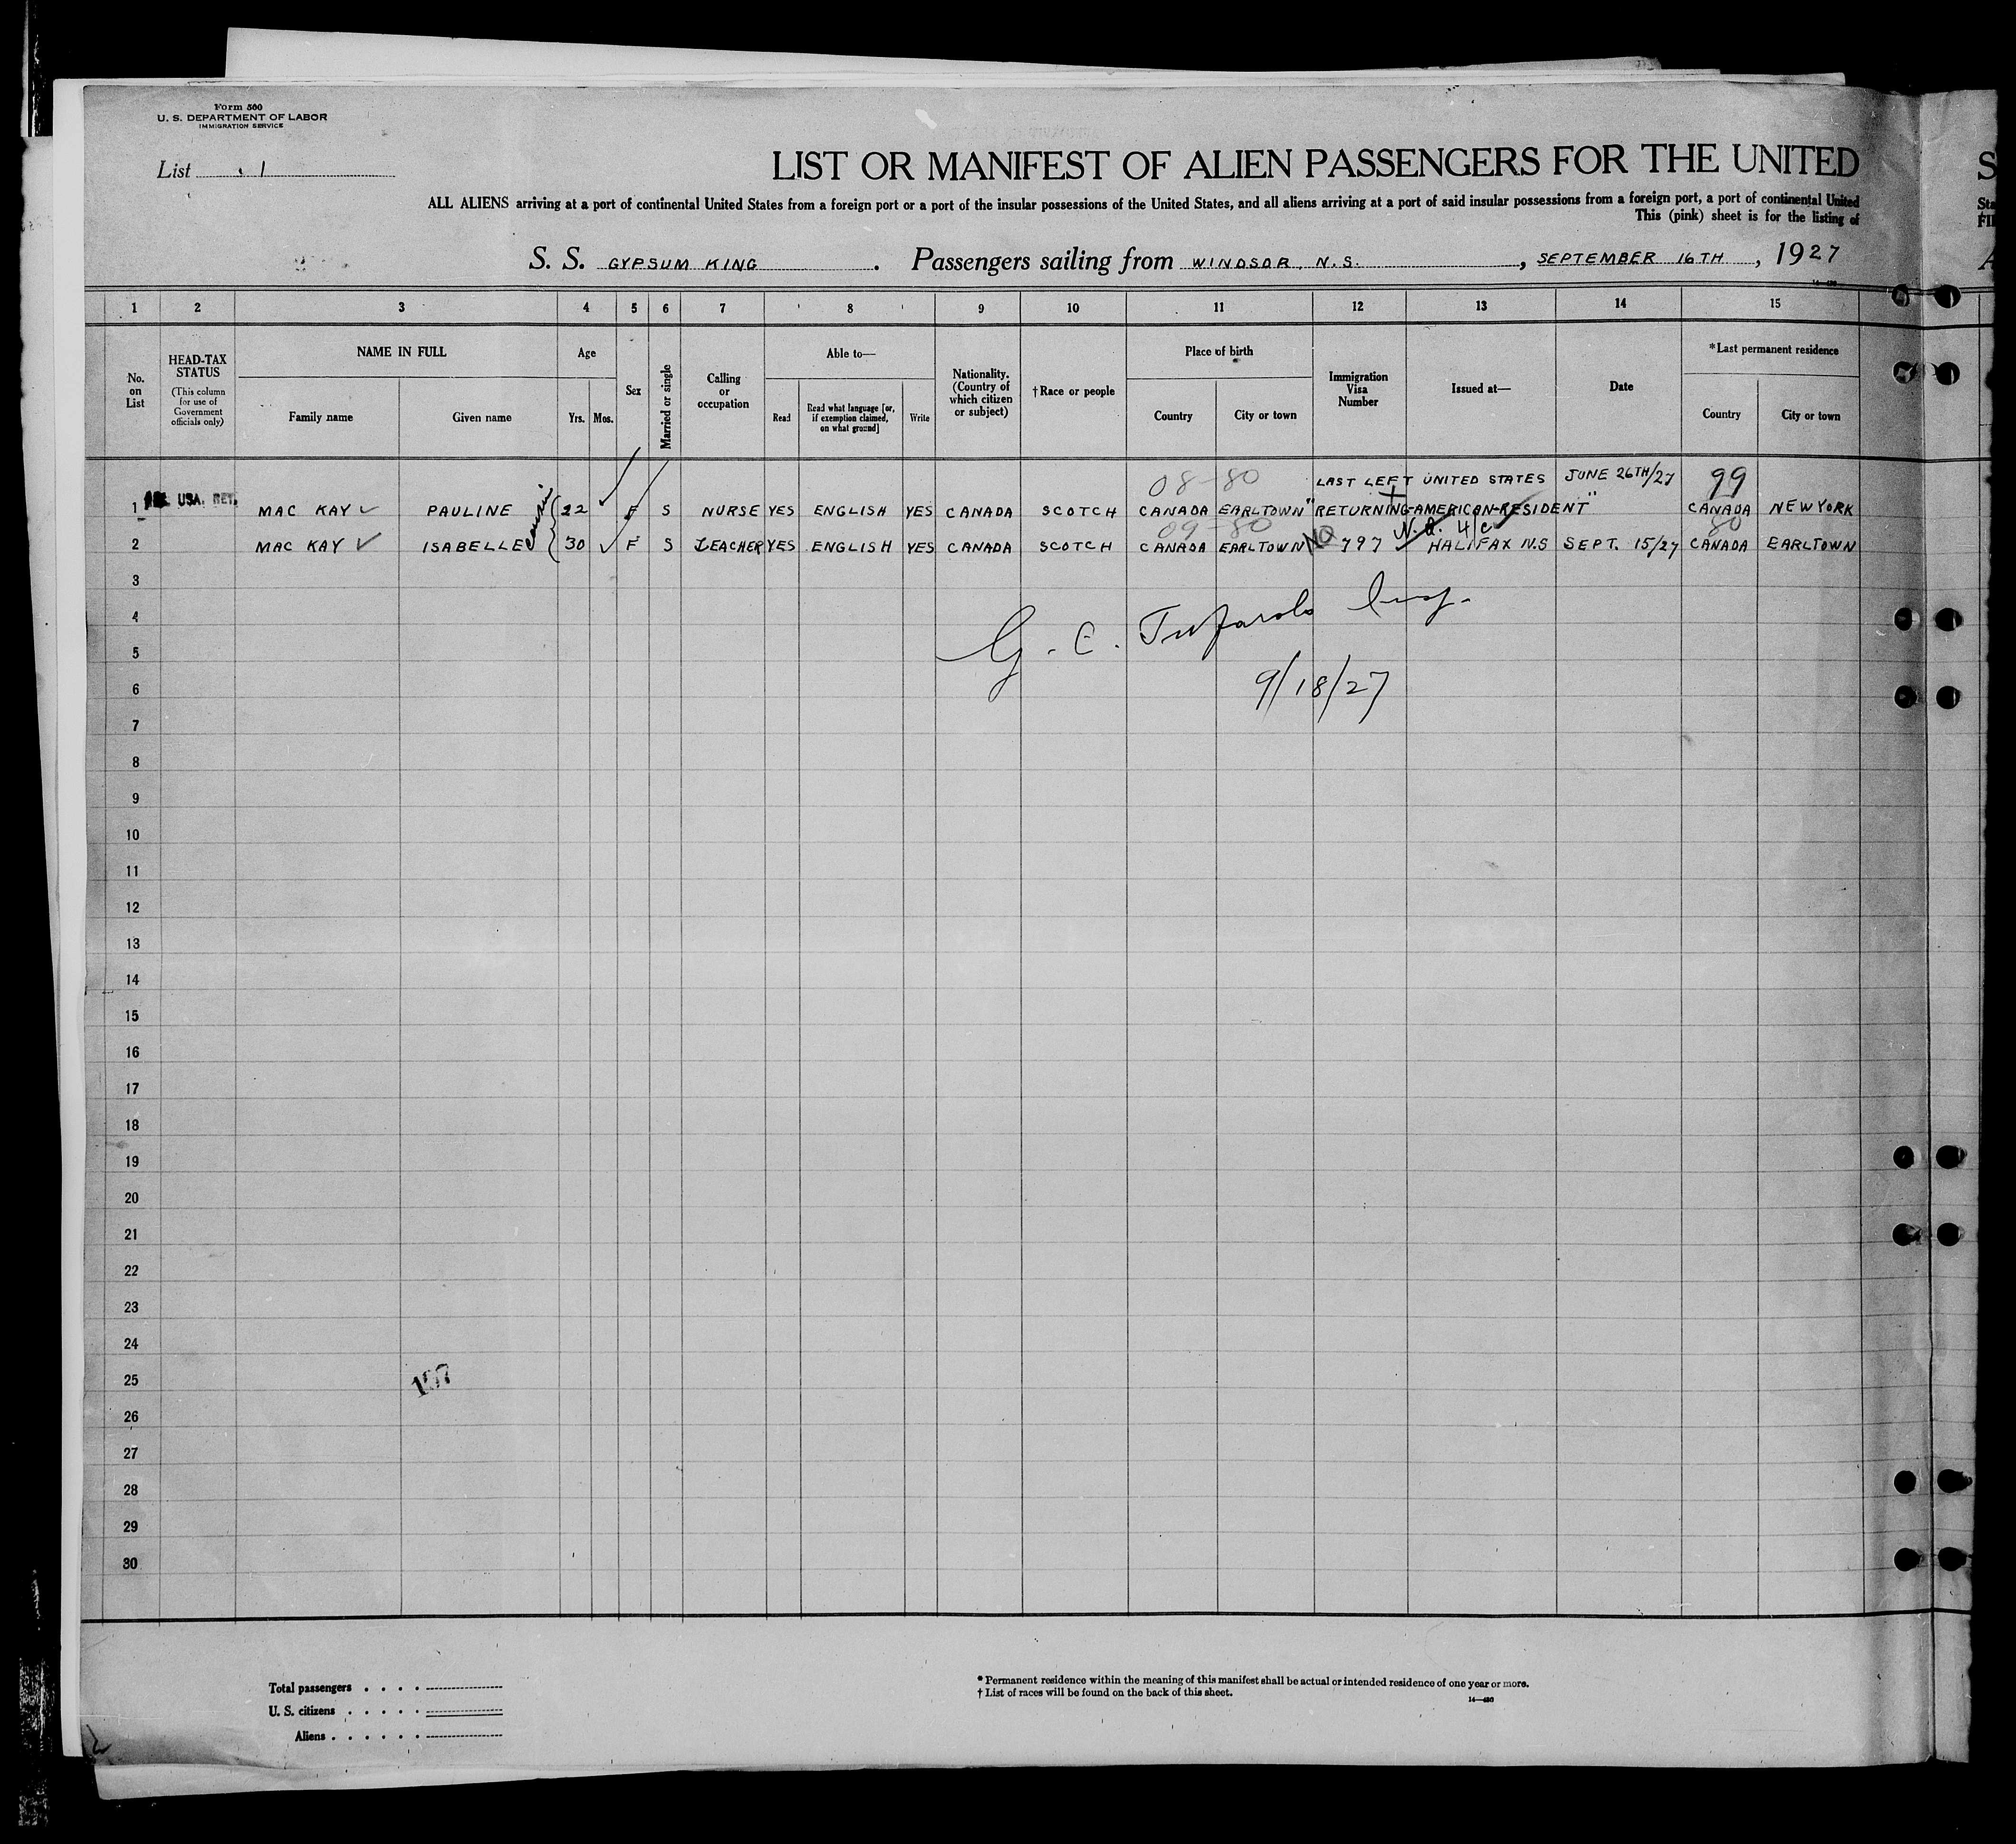 Form 500
U. S. DEPARTMENT OF LABOR
IMMIGRATION SERVICE
List 1
LIST OR MANIFEST OF ALIEN PASSENGERS FOR THE UNITED
ALL ALIENS arriving at a port of continental United States from a foreign port or a port of the insular possessions of the United States, and all aliens arriving at a port of said insular possessions from a foreign port, a port of continental United
This (pink) sheet is for the listing of
S. S. GYPSUM KING. Passengers sailing from WINDSOR, N.S., SEPTEMBER 16TH, 1927
1 2 3 4 5 6 7 8 9 10 11 12 13 14 15
No. on List
HEAD-TAX STATUS
(This column for use of Government officials only)
NAME IN FULL
Family name Given name
Age
Yrs. Mos.
Sex
Married or single
Calling or occupation
Able to—
Read Read what language [or, if exemption claimed, on what ground] Write
Nationality. (Country of which citizen or subject)
†Race or people
Place of birth
Country City or town
Immigration Visa Number
Issued at—
Date
*Last permanent residence
Country City or town
08-80 LAST LEFT UNITED STATES JUNE 26TH/27 99
1 USA. RET. MAC KAY PAULINE 22 F S NURSE YES ENGLISH YES CANADA SCOTCH CANADA EARLTOWN "RETURNING-AMERICAN-RESIDENT" CANADA NEW YORK
09-80 N.A. 4/c 80
2 MAC KAY ISABELLE 30 F S TEACHER YES ENGLISH YES CANADA SCOTCH CANADA EARLTOWN NO 797 HALIFAX N.S SEPT. 15/27 CANADA EARLTOWN
3
4
G. C.
5
6
9/18/27
7
8
9
10
11
12
13
14
15
16
17
18
19
20
21
22
23
24
25
26
27
28
29
30
Total passengers
U. S. citizens
Aliens
* Permanent residence within the meaning of this manifest shall be actual or intended residence of one year or more.
† List of races will be found on the back of this sheet.
14—430